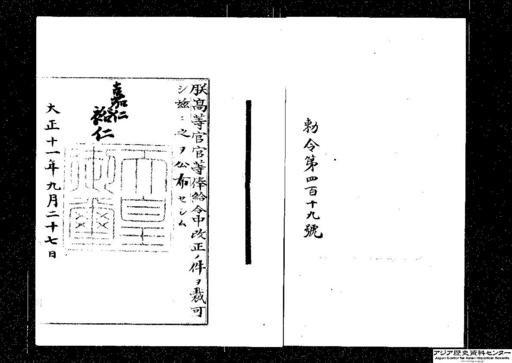 勅令第四百十九號
朕高等官官等俸給令中改正ノ件ヲ裁可
シ茲ニ之ヲ公布セシム
嘉仁
裕仁
天皇御璽
大正十一年九月二十七日
アジア歴史資料センター
Japan Center for Asian Historical Records